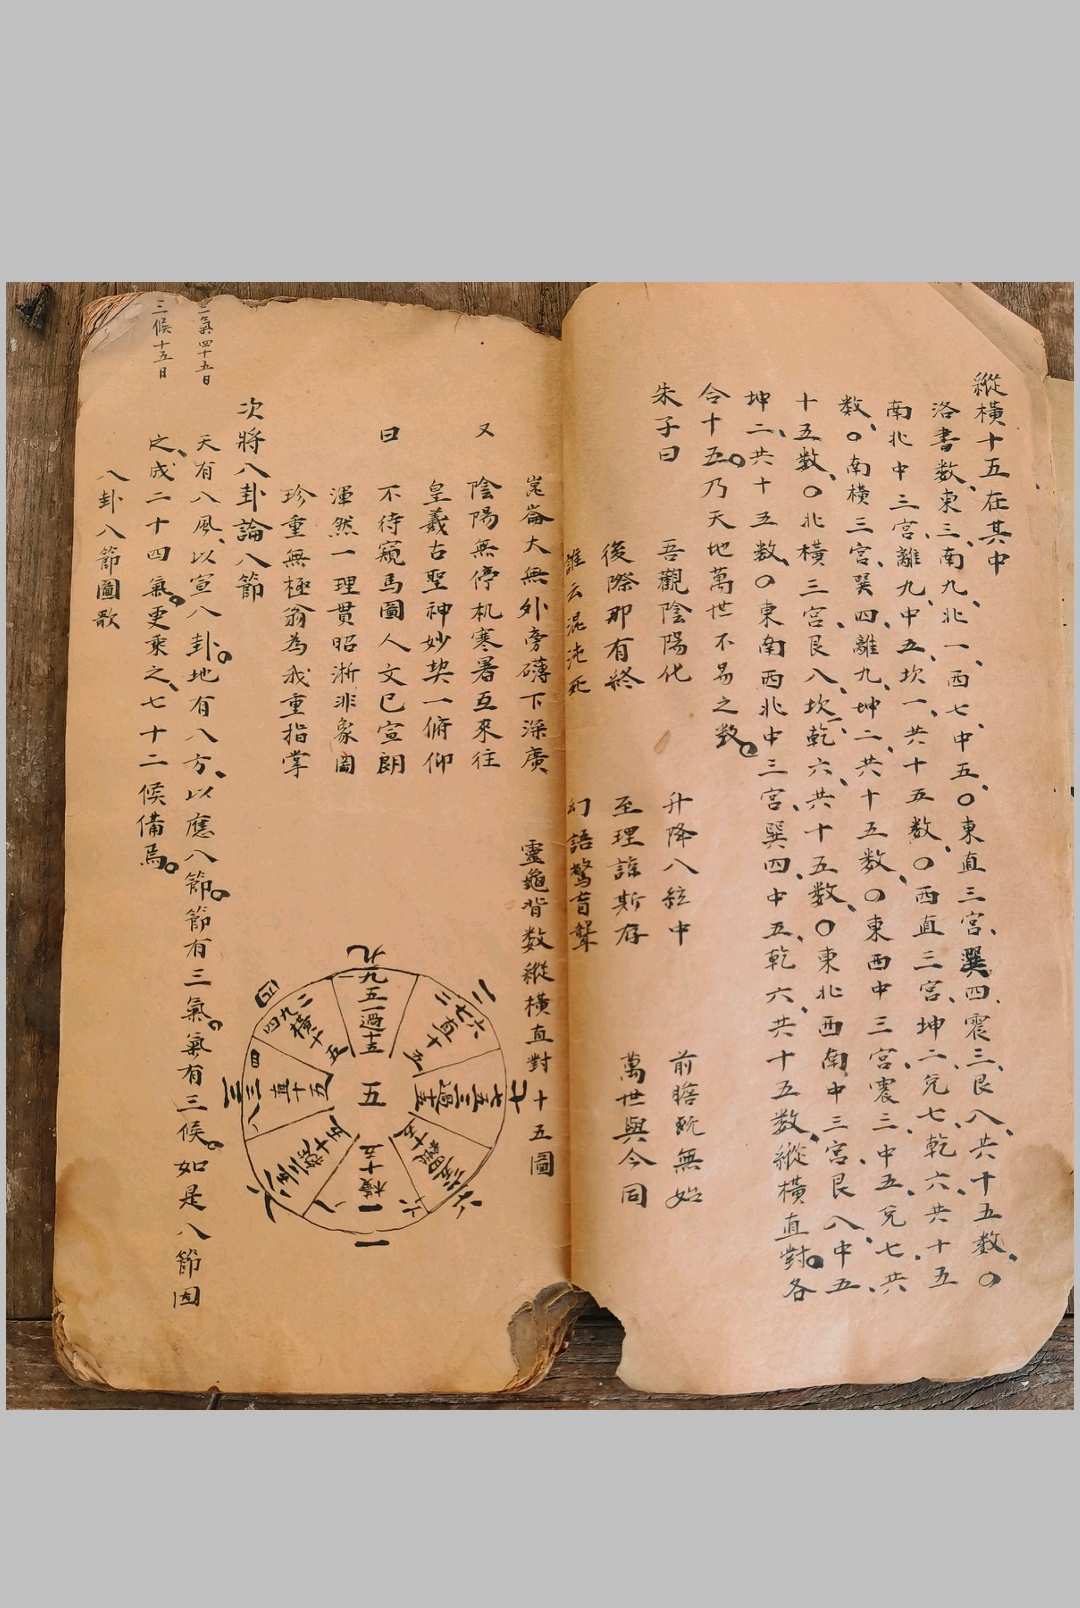 縱橫十五在其中
洛書数、東三、南九、北一、西七、中五、〇東直三宮、巽四、震三、艮八、共十五数、〇
南北中三宮、離九、中五、坎一、共十五数、〇西直三宮、坤二、兌七、乾六、共十五
数、〇南橫三宮、巽四、離九、坤二、共十五数、〇東西中三宮、震三、中五、兌七、共
十五数、〇北橫三宮、艮八、坎一、乾六、共十五数、〇東北西南中三宮、艮八、中五、
坤二、共十五数、〇東南西北中三宮、巽四、中五、乾六、共十五数、縱橫直對。各
合十五。乃天地萬世不易之数。
朱子曰 吾觀陰陽化 升降八紘中 前瞻既無始
後際那有終 至理諒斯存 萬世與今同
誰云混沌死 幻語驚盲聾
崑崙大無外旁礴下深廣 靈龜背数縱橫直對十五圖
又 陰陽無停机寒暑互來往
皇羲古聖神妙契一俯仰
曰 不待窺馬圖人文已宣朗
渾然一理貫昭淅非象罔
珍重無極翁為我重指掌
九
九五一過十五
二
二七六直十五
七
七五三過十五
六
一
一橫十五
八
三
八三四直十五
四
四九二橫十五
五
次將八卦論八節
三氣四十五日
天有八風、以宣八卦。地有八方、以應八節。節有三氣。氣有三候。如是八節因
三候十五日
之、成二十四氣。更乘之、七十二候備焉。
八卦八節圖歌